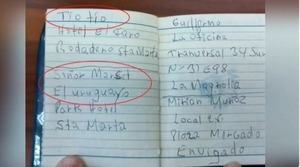 Tio tio
Hotel el Faro
Rodadero Sta Marta
Señor Marset
El uruguayo
Park Hotel
Sta Marta
Guillermo
La oficina
Tranversal 34 Sur
Nº 31E98
La Magnolia
Miryan Muñoz
Local
Plaza Mercado
Envigado